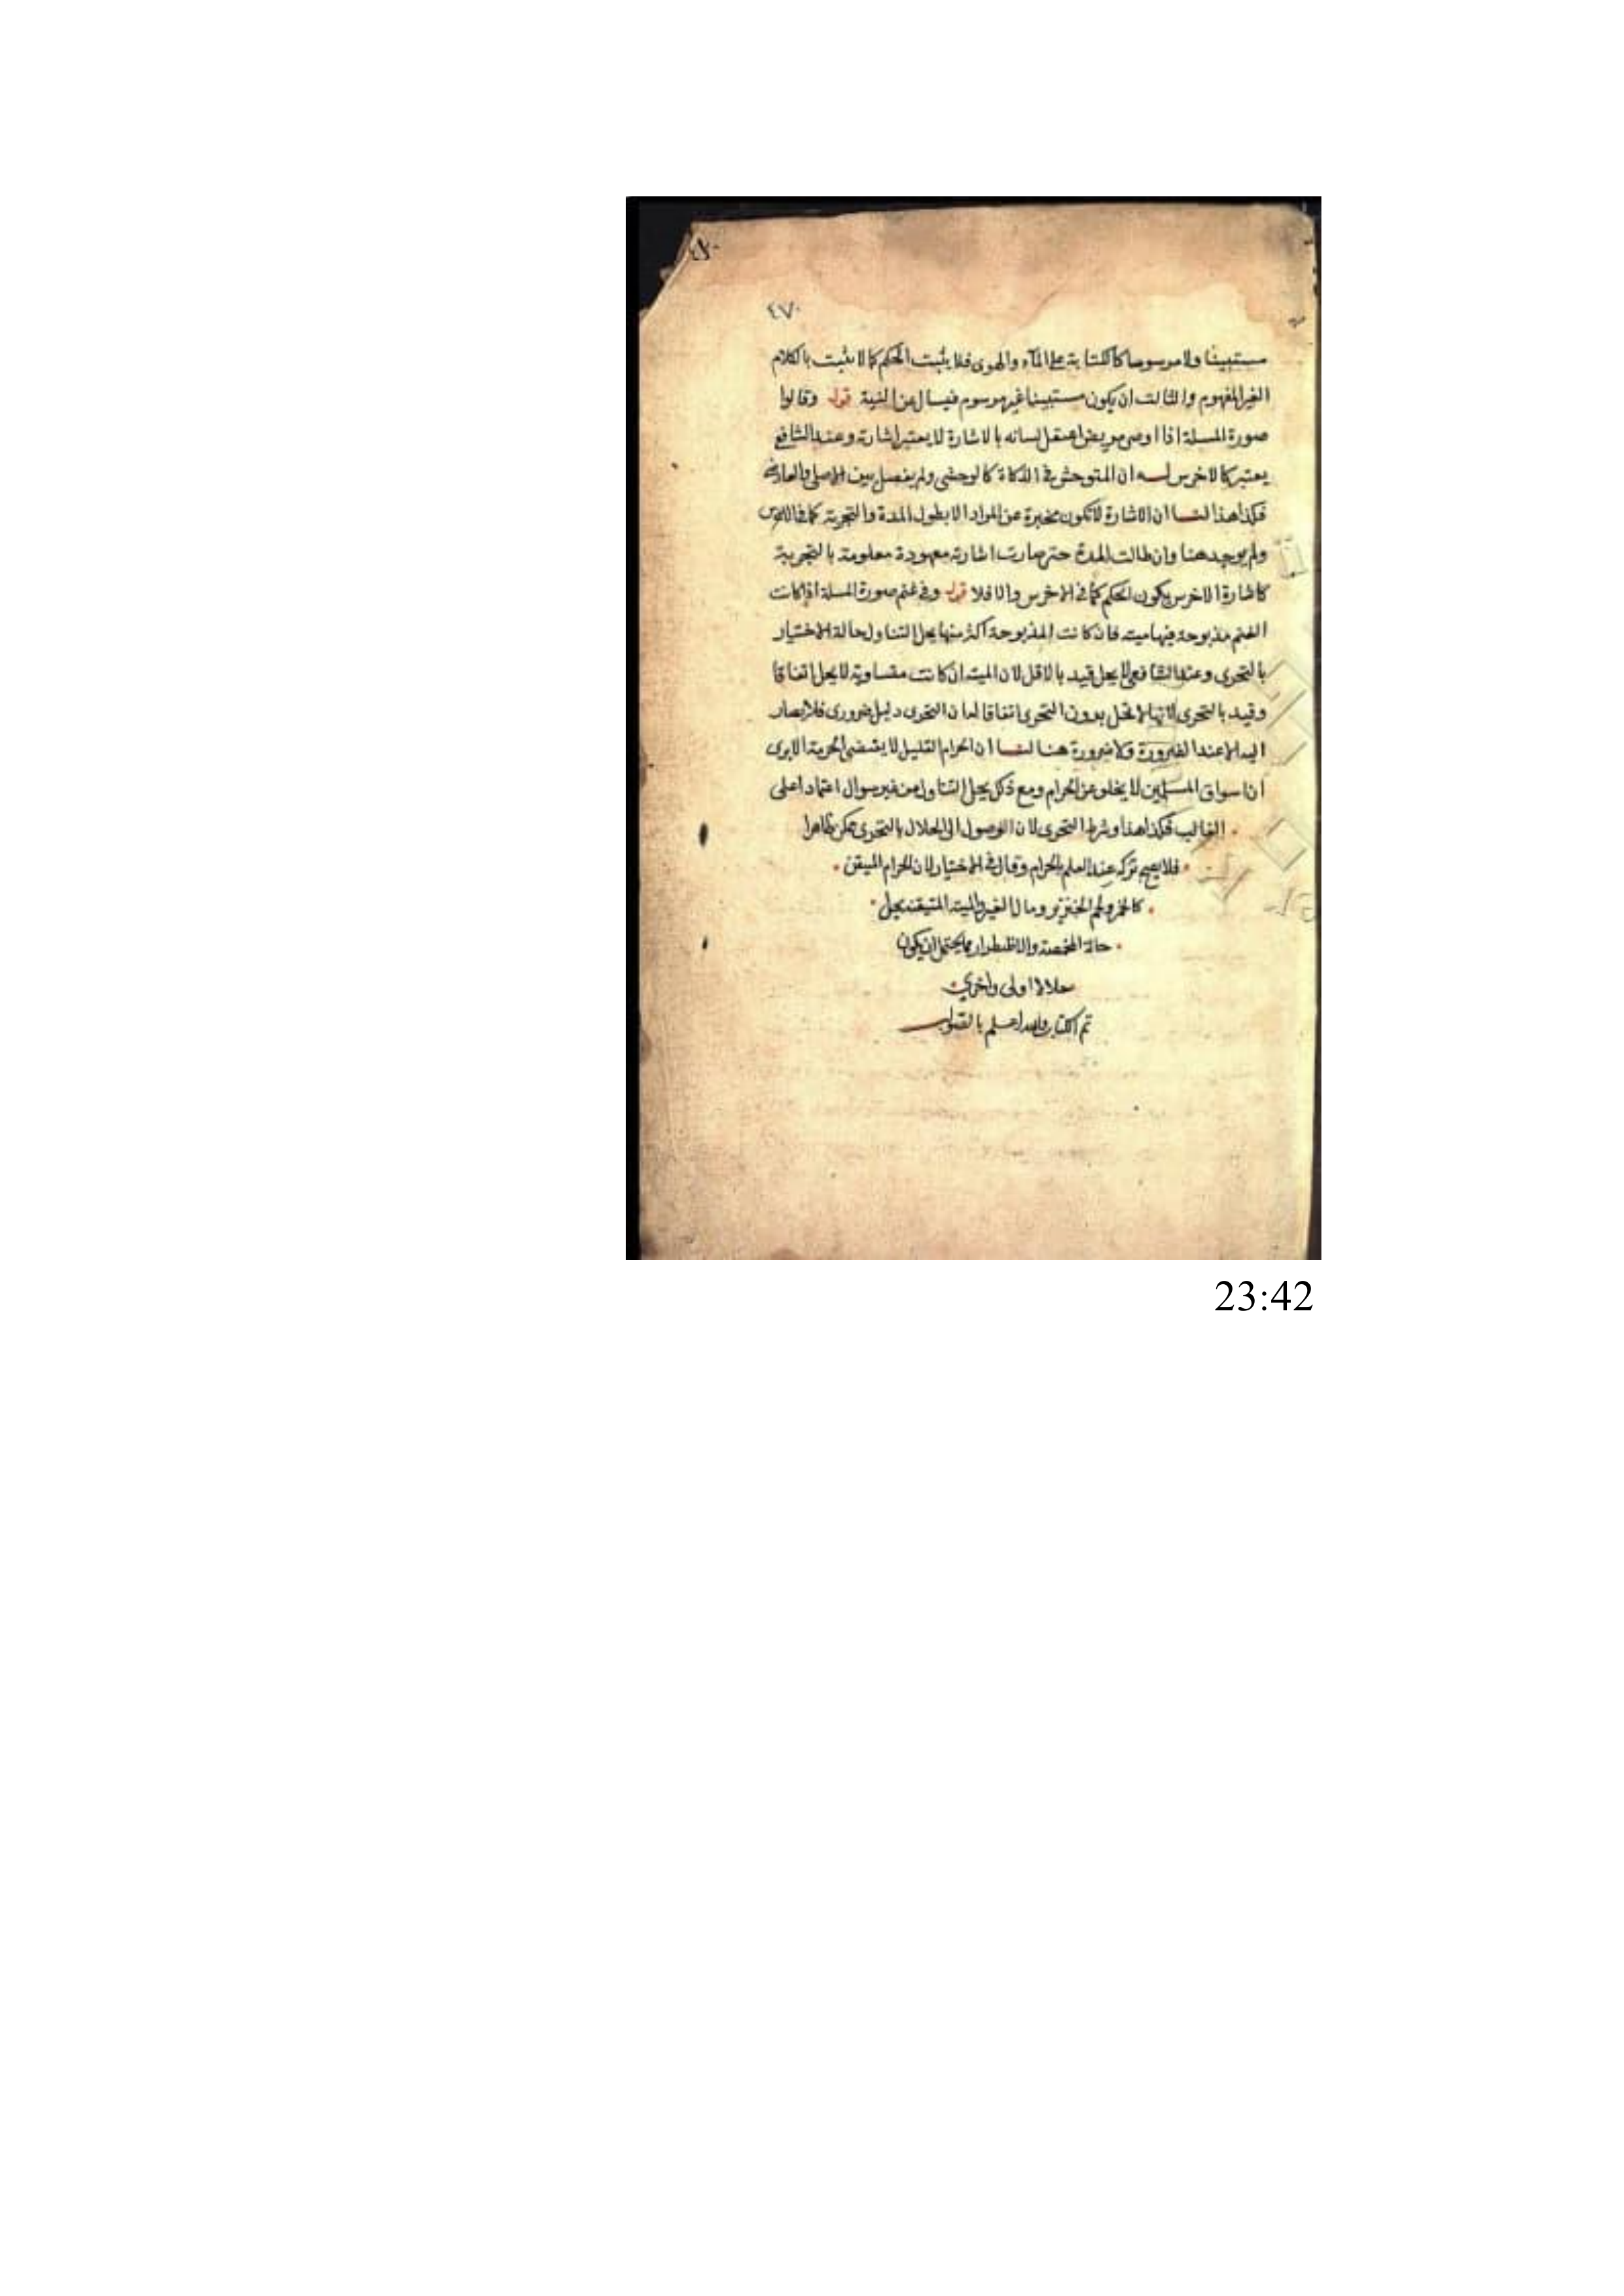 ٤٧٠
مستبينا ولا مرسوما كالكتابة على المآء والهوى فلا يثبت الحكم كما لا يثبت بالكلام
الغير المفهوم والثالث ان يكون مستبينا غير موسوم فيسال عن النية قوله وقالوا
صورة المسلة اذا اوصى مريض اعتقل لسانه بالاشارة لا يعتبر اشارته وعند الشافعي
يعتبر كالاخرس له ان المتوحش في الذكاة كالوحشي ولم يفصل بين الاصلي والعارضي
فكذا هذا لنا ان الاشارة لا تكون مخبرة عن المراد الا بطول المدة والتجربة كما في الاخرس
ولم يوجد هنا وان طالت المدة حتى صارت اشارته معهودة معلومة بالتجربة
كاشارة الاخرس يكون الحكم كما في الاخرس والا فلا قوله وفي غنم صورة المسلة اذا كانت
الغنم مذبوحة فيها ميته فان كانت المذبوحة اكثر منها يحل التناول حالة الاختيار
بالتحرى وعند الشافعي لا يحل قيد بالاقل لان الميته ان كانت متساوية لا يحل اتفاقا
وقيد بالتحرى لانها لا تحل بدون التحرى اتفاقا له ان التحرى دليل ضرورى فلا يصار
اليه الا عند الضرورة ولا ضرورة هنا لنا ان الحرام القليل لا يقتضي الحرمة الا يرى
ان اسواق المسلمين لا يخلو عن الحرام ومع ذلك يحل التناول من غير سوال اعتمادا على
الغالب فكذا هذا وشرط التحرى لان الوصول الى الحلال بالتحرى ممكن ظاهرا
فلا يصح تركه عند العلم بالحرام وقال في الاختيار لان الحرام الميقن
كالخمر ولحم الخنزير ومال الغير والميته المتيقنه يحل
حالة المخمصة والاضطرار مما يحتمل ان يكون
حلالا اولى واحرى
تم الكتاب والله اعلم بالصواب
23:42